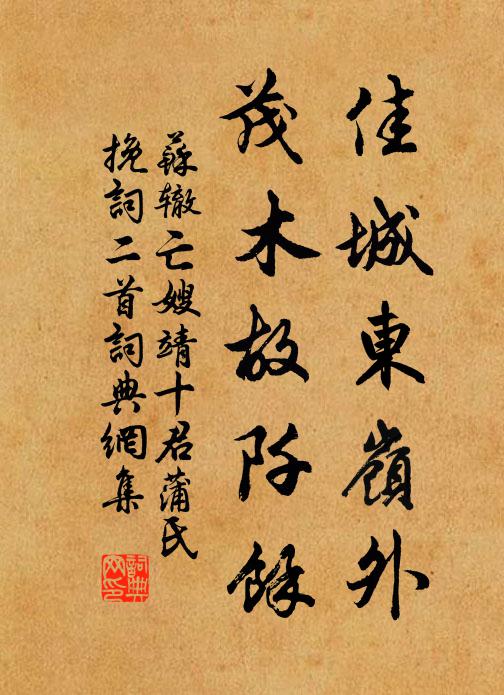 佳城東嶺外
茂木故阡餘
蘇轍亡嫂靖十君蒲氏
挽詞二首詞典網集
詞典
网印